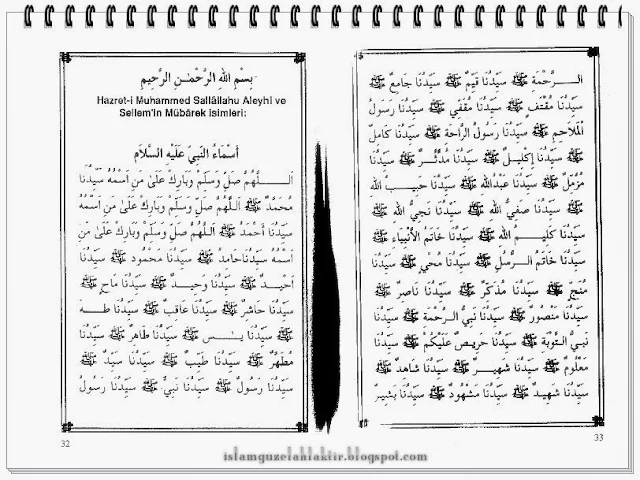 بِسْمِ اللهِ الرَّحْمٰنِ الرَّحِيمِ
Hazret-i Muhammed Sallâllahu Aleyhi ve
Sellem'in Mübârek isimleri:
أَسْمَاءُ النَّبِيِّ عَلَيْهِ السَّلَامُ
اَللّٰهُمَّ صَلِّ وَسَلِّمْ وَبَارِكْ عَلٰى مَنِ اسْمُهُ سَيِّدُنَا
مُحَمَّدٌ ﷺ اَللّٰهُمَّ صَلِّ وَسَلِّمْ وَبَارِكْ عَلٰى مَنِ اسْمُهُ
سَيِّدُنَا أَحْمَدُ ﷺ اَللّٰهُمَّ صَلِّ وَسَلِّمْ وَبَارِكْ عَلٰى مَنِ
اسْمُهُ سَيِّدُنَا حَامِدٌ ﷺ سَيِّدُنَا مَحْمُودٌ ﷺ سَيِّدُنَا
أَحِيدٌ ﷺ سَيِّدُنَا وَحِيدٌ ﷺ سَيِّدُنَا مَاحٍ ﷺ
سَيِّدُنَا حَاشِرٌ ﷺ سَيِّدُنَا عَاقِبٌ ﷺ سَيِّدُنَا طٰهٰ
ﷺ سَيِّدُنَا يٰسٓ ﷺ سَيِّدُنَا طَاهِرٌ ﷺ سَيِّدُنَا
مُطَهَّرٌ ﷺ سَيِّدُنَا طَيِّبٌ ﷺ سَيِّدُنَا سَيِّدٌ ﷺ
سَيِّدُنَا رَسُولٌ ﷺ سَيِّدُنَا نَبِيٌّ ﷺ سَيِّدُنَا رَسُولُ
32
الرَّحْمَةِ ﷺ سَيِّدُنَا قَيِّمٌ ﷺ سَيِّدُنَا جَامِعٌ ﷺ
سَيِّدُنَا مُقْتَفٍ ﷺ سَيِّدُنَا مُقَفِّي ﷺ سَيِّدُنَا رَسُولُ
الْمَلَاحِمِ ﷺ سَيِّدُنَا رَسُولُ الرَّاحَةِ ﷺ سَيِّدُنَا كَامِلٌ
ﷺ سَيِّدُنَا إِكْلِيلٌ ﷺ سَيِّدُنَا مُدَّثِّرٌ ﷺ سَيِّدُنَا
مُزَّمِّلٌ ﷺ سَيِّدُنَا عَبْدُاللهِ ﷺ سَيِّدُنَا حَبِيبُ اللهِ
ﷺ سَيِّدُنَا صَفِيُّ اللهِ ﷺ سَيِّدُنَا نَجِيُّ اللهِ ﷺ
سَيِّدُنَا كَلِيمُ اللهِ ﷺ سَيِّدُنَا خَاتَمُ الْأَنْبِيَاءِ ﷺ
سَيِّدُنَا خَاتَمُ الرُّسُلِ ﷺ سَيِّدُنَا مُحْيٍ ﷺ سَيِّدُنَا
مُنْجٍ ﷺ سَيِّدُنَا مُذَكِّرٌ ﷺ سَيِّدُنَا نَاصِرٌ ﷺ
سَيِّدُنَا مَنْصُورٌ ﷺ سَيِّدُنَا نَبِيُّ الرَّحْمَةِ ﷺ سَيِّدُنَا
نَبِيُّ التَّوْبَةِ ﷺ سَيِّدُنَا حَرِيصٌ عَلَيْكُمْ ﷺ سَيِّدُنَا
مَعْلُومٌ ﷺ سَيِّدُنَا شَهِيرٌ ﷺ سَيِّدُنَا شَاهِدٌ ﷺ
سَيِّدُنَا شَهِيدٌ ﷺ سَيِّدُنَا مَشْهُودٌ ﷺ سَيِّدُنَا بَشِيرٌ
33
islamguzelahlaktir.blogspot.com